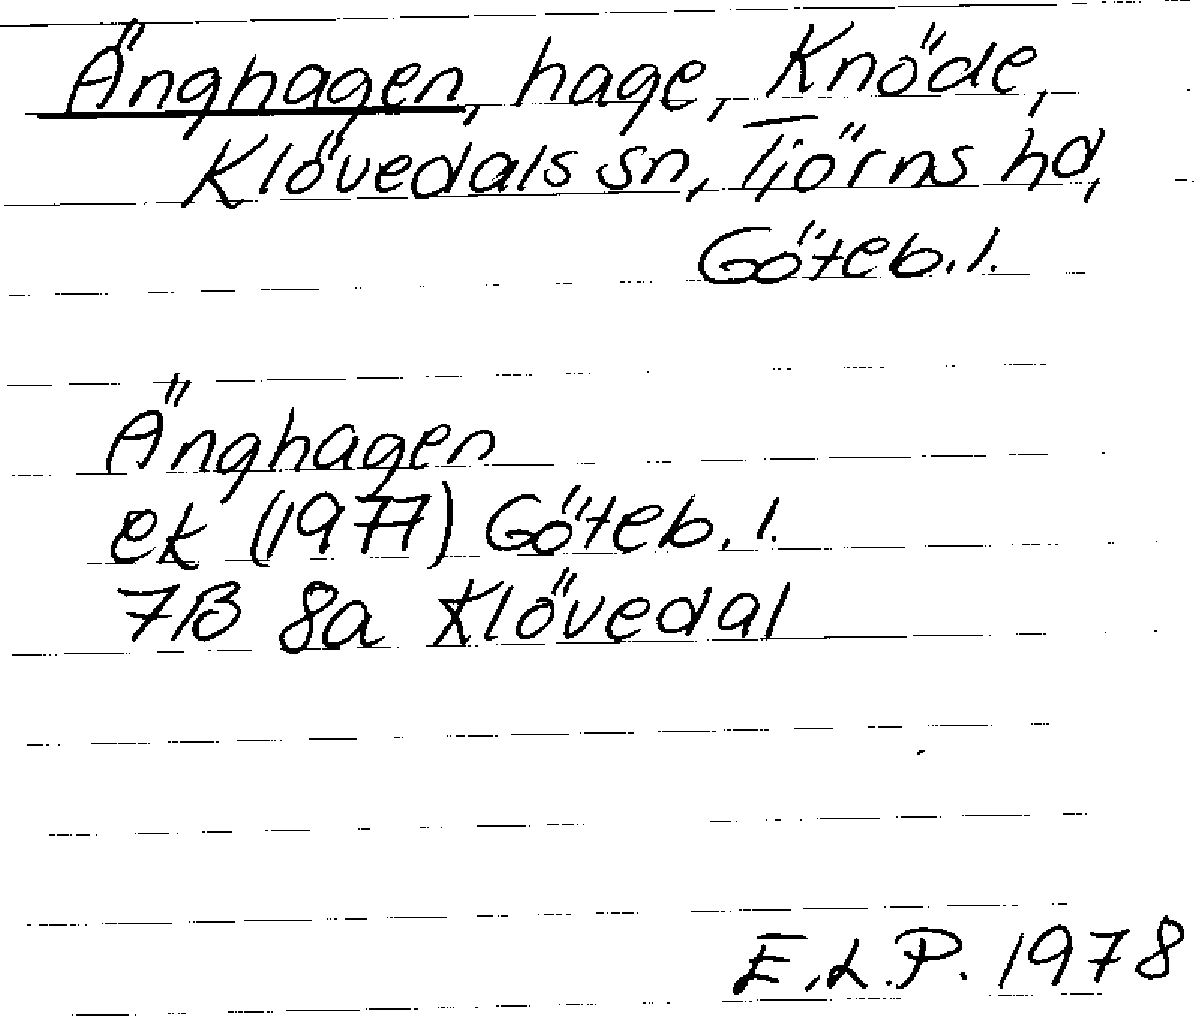 Änghagen, hage, Knöde,
Klövedals sn, Tjörns hd,
Göteb. l.
Änghagen
ek (1977) Göteb. l.
7B 8a Klövedal
E.L.P. 1978